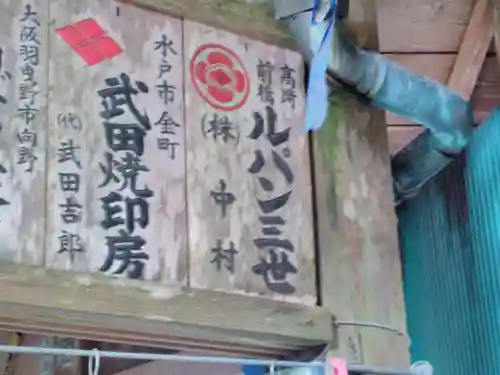 高崎
前橋
ルパン三世
(株)中村
水戸市金町
武田焼印房
(代)武田吉郎
大阪羽曳野市向野